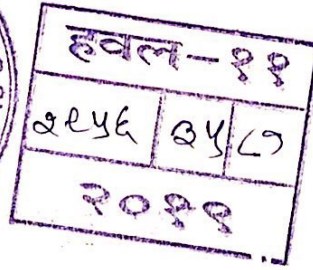 हवल-११
२९५६ ३५ ८७
२०१९